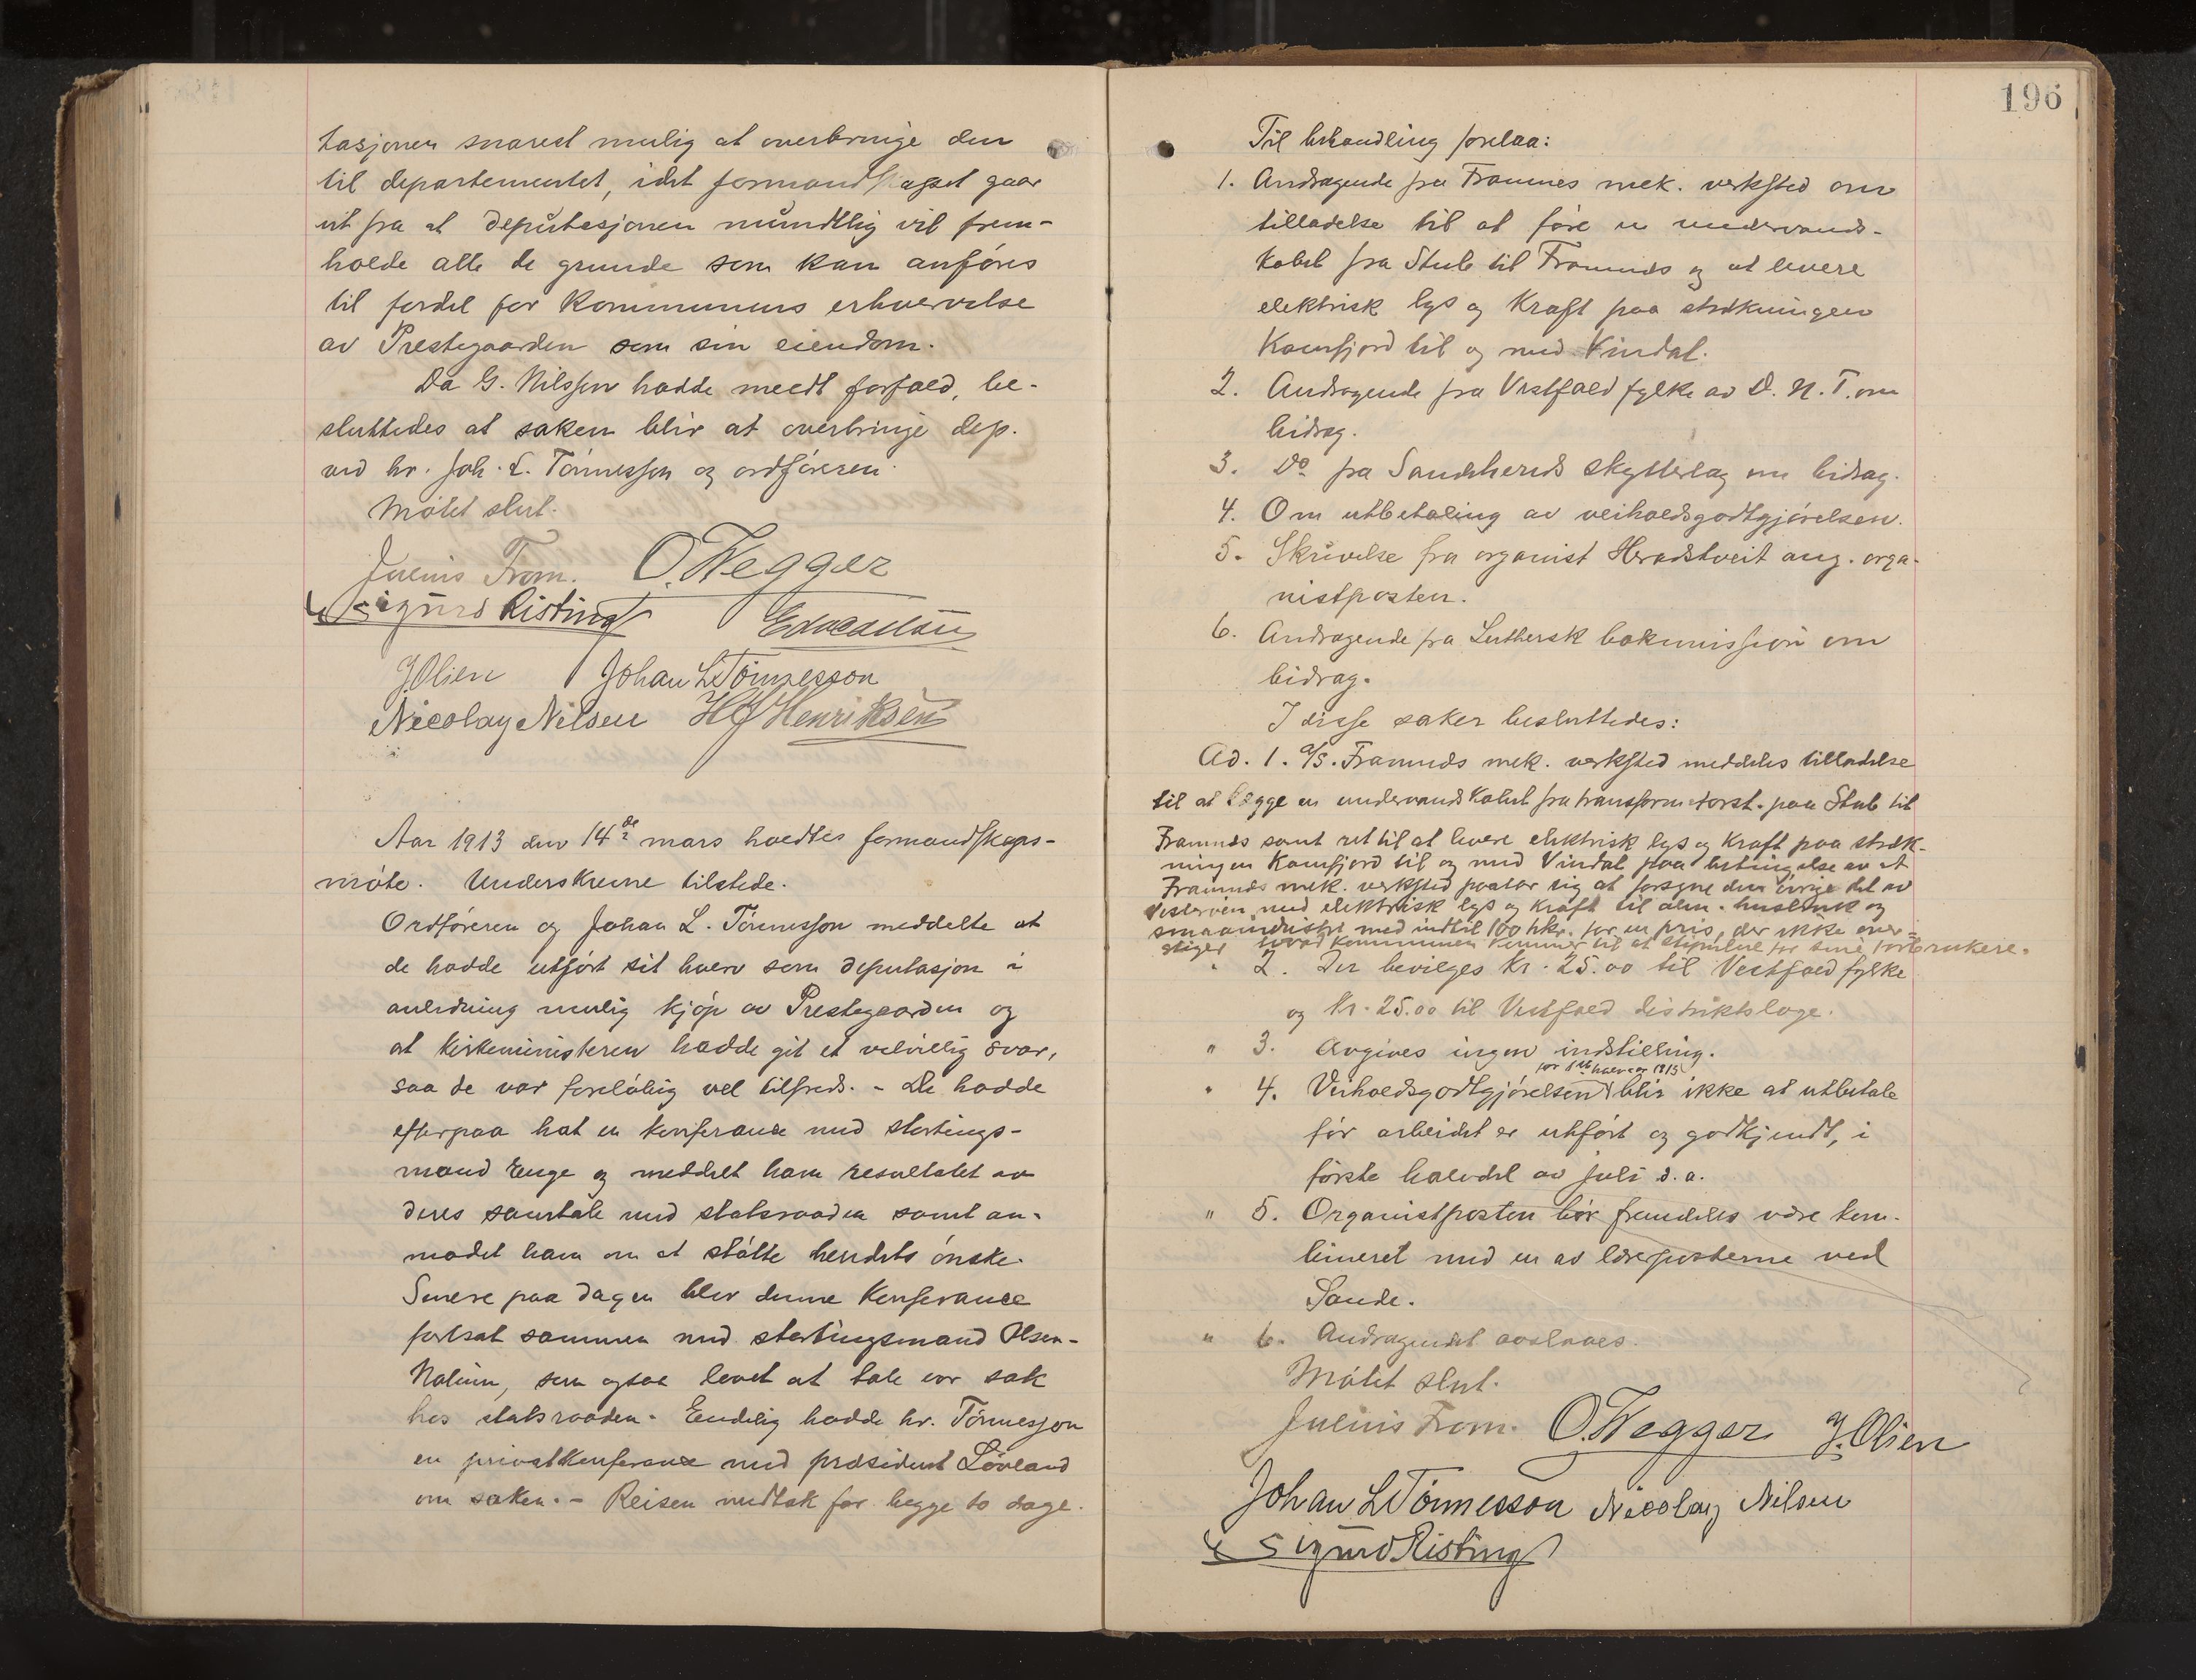 tasjonen snarest mulig at overbringe den
til departementet, idet formandskapet gaar
ut fra at deputasjonen mundtlig vil frem-
holde alle de grunde som kan anføres
til fordel for kommunens erhvervelse
av Prestegaarden som sin eiendom.
Da G. Nilssen hadde meldt forfald, be-
sluttedes at saken blir at overbringe dep.
ved hr. Joh. L. Tønnesson og ordføreren.
Møtet slut.
Julius From. O. Wegger
Sigurd Risting
J. Olsen Johan L. Tønnesson
Nicolay Nilsen H J Henriksen
Aar 1913 den 14de mars holdtes formandskaps-
møte. Underskrevne tilstede.
Ordføreren og Johan L. Tønnesson meddelte at
de hadde utført sit hverv som deputasjon i
anledning mulig kjøp av Prestegaarden og
at kirkeministeren hadde git et velvillig svar,
saa de var foreløbig vel tilfreds. - De hadde
efterpaa hat en konferanse med stortings-
mand Enge og meddelt ham resultatet av
deres samtale med statsraaden samt an-
modet ham om at støtte herredets ønske.
Senere paa dagen blev denne konferance
fortsat sammen med stortingsmand Olsen-
Nalum, som ogsaa lovet at tale vor sak
hos statsraaden. Endelig hadde hr. Tønnesson
en privatkonferanse med president Løvland
om saken. - Reisen medtok for begge to dage.
196
Til behandling forelaa:
1. Andragende fra Framnes mek. verksted om
tilladelse til at føre en undervands-
kabel fra Stub til Framnæs og at levere
elektrisk lys og kraft paa strækningen
Kamfjord til og med Vindal.
2. Andragende fra Vestfold fylke av D. N. T. om
bidrag.
3. Do fra Sandeherreds skytterlag om bidrag.
4. Om utbetaling av veiholdsgodtgjørelsen.
5. Skrivelse fra organist Heradstveit ang. orga-
nistposten.
6. Andragende fra Luthersk bokmission om
bidrag.
I disse saker besluttedes:
Ad. 1. A/S. Framnæs mek. verksted meddeles tilladelse
til at lægge en undervandskabel fra transformatorst. paa Stub til
Framnæs samt ret til at levere elektrisk lys og kraft paa stræk-
ningen Kamfjord til og med Vindal paa betingelse av at
Framnæs mek. verksted paatar sig at forsyne den øvrige del av
Vesterøen med elektrisk lys og kraft til alm. husbruk og
smaaindustri med indtil 100 hkr. for en pris, der ikke over-
stiger hvad kommunen kommer til at stipulere for sine forbrukere.
" 2. Der bevilges kr. 25.00 til Vestfold fylke
og kr. 25.00 til Vestfold distriktsloge.
" 3. Avgives ingen indstilling.
" 4. Veiholdsgodtgjørelsen for 1ste halvaar 1913 blir ikke at utbetale
før arbeidet er utført og godkjendt, i
første halvdel av juli d. a.
" 5. Organistposten bør fremdeles være kom-
bineret med en av lærerposterne ved
Sande.
" 6. Andragendet avslaaes.
Møtet slut.
Julius From. O. Wegger J. Olsen
Johan L. Tønnesson Nicolay Nilsen
Sigurd Risting